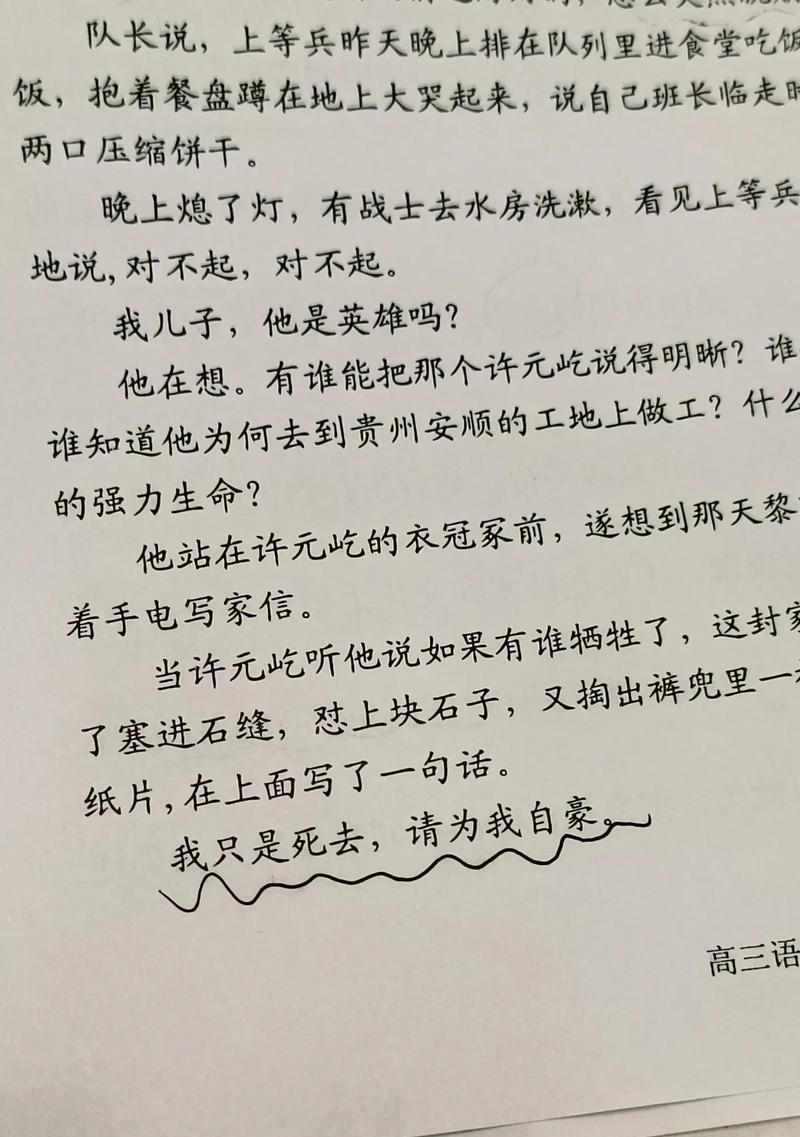 队长说，上等兵昨天晚上排在队列里进食堂吃饭
饭，抱着餐盘蹲在地上大哭起来，说自己班长临走时
两口压缩饼干。
晚上熄了灯，有战士去水房洗漱，看见上等兵
地说，对不起，对不起。
我儿子，他是英雄吗？
他在想。有谁能把那个许元屹说得明晰？谁
谁知道他为何去到贵州安顺的工地上做工？什么
的强力生命？
他站在许元屹的衣冠冢前，遂想到那天黎
着手电写家信。
当许元屹听他说如果有谁牺牲了，这封家
了塞进石缝，怼上块石子，又掏出裤兜里一
纸片，在上面写了一句话。
我只是死去，请为我自豪。
高三语